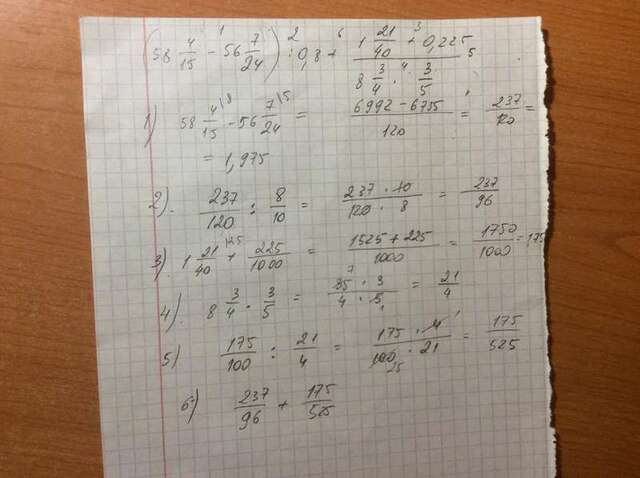 (58 4/15 - 56 7/24) : 0,8 + (1 21/40 + 0,225) / (8 3/4 · 3/5)
1) 58 4/15 - 56 7/24 = (6992 - 6755)/120 = 237/120 =
= 1,975
2). 237/120 : 8/10 = (237 · 10)/(120 · 8) = 237/96
3) 1 21/40 + 225/1000 = (1525 + 225)/1000 = 1750/1000 = 1,75
4). 8 3/4 · 3/5 = (35 · 3)/(4 · 5) = 21/4
5) 175/100 : 21/4 = (175 · 4)/(100 · 21) = 175/525
6) 237/96 + 175/525